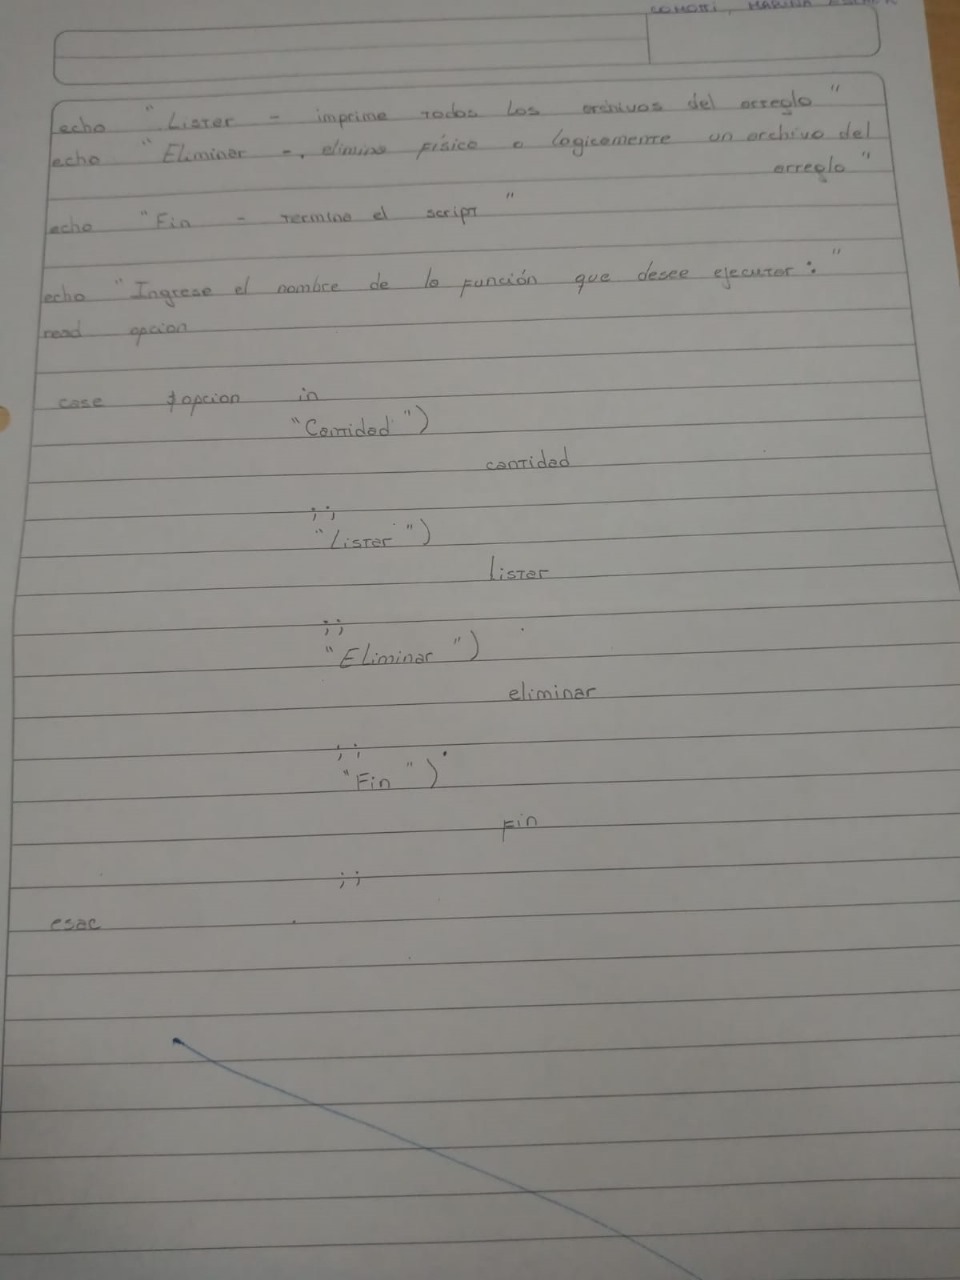 COMOTTI, MARINA
echo "Listar - imprime todos los archivos del arreglo"
echo "Eliminar -, elimina físico o logicamente un archivo del
arreglo"
echo "Fin - termina el script"
echo "Ingrese el nombre de la función que desee ejecutar:"
read opcion
case $opcion in
"Cantidad")
cantidad
;;
"Listar")
listar
;;
"Eliminar")
eliminar
;;
"Fin")
fin
;;
esac